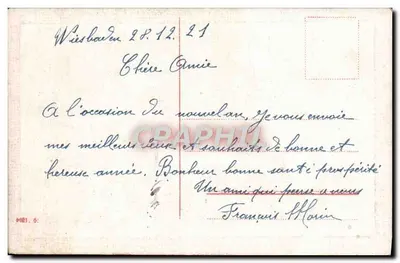 Wiesbaden 28.12.21
Chère Amie
A l'occasion du nouvel an, je vous envoie
mes meilleurs vœux et souhaits de bonne et
hereuse année. Bonheur bonne santé prospérité
Un ami qui pense a vous
François Morin
CPAPHIL